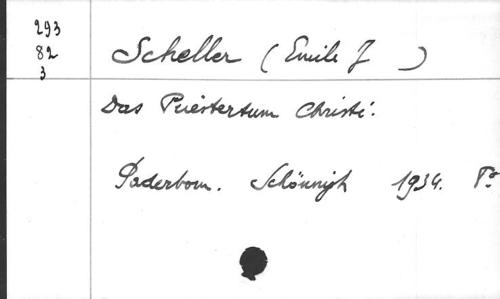 293
82
3
Scheller (Emile J )
Das Priestertum Christi.
Paderborn. Schönnigh 1934. 8º